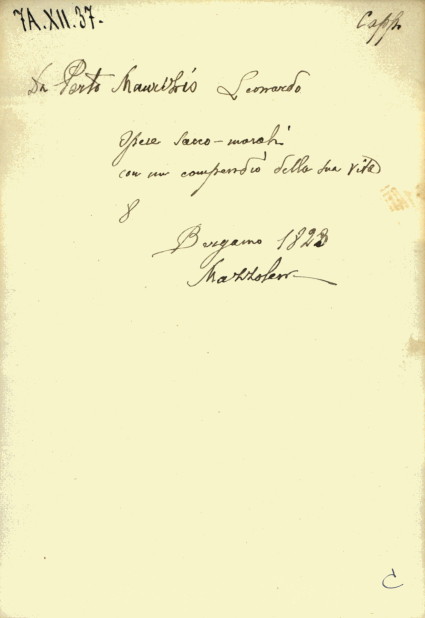 7A.XII.37.
Capp.
Da Porto Maurizio Leonardo
Opere sacro-morali
con un compendio della sua vita
8
Bergamo 1823
Mazzoleni
C